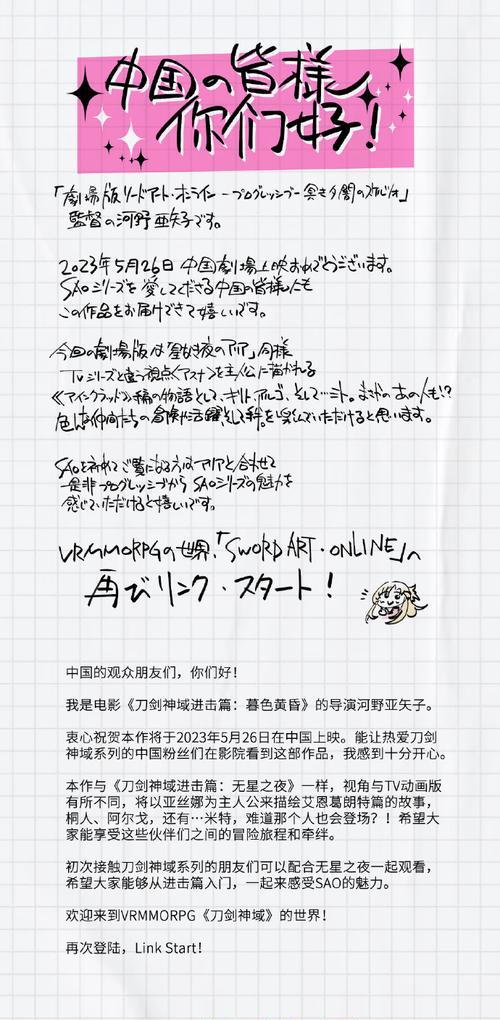 中国の皆様
你们好!
「劇場版ソードアート・オンライン -プログレッシブ- 冥き夕闇のスケルツォ」
監督の河野亜矢子です。
2023年5月26日 中国劇場上映おめでとうございます。
SAOシリーズを愛してくださる中国の皆様にも
この作品をお届けできて嬉しいです。
今回の劇場版は「星なき夜のアリア」同様
TVシリーズと違う視点〈アスナ〉を主人公に描かれる
《アインクラッド》編の物語として、キリト、アルゴ、そして…ミト。まさかのあの人も!?
色んな仲間たちの冒険や活躍、そして絆を楽しんでいただけると思います。
SAOを初めてご覧になる方はアリアと合わせて
是非プログレッシブから SAOシリーズの魅力を
感じていただけると嬉しいです。
VRMMORPGの世界、「SWORD ART・ONLINE」へ
再びリンク・スタート!
中国的观众朋友们，你们好!
我是电影《刀剑神域进击篇：暮色黄昏》的导演河野亚矢子。
衷心祝贺本作将于2023年5月26日在中国上映。能让热爱刀剑
神域系列的中国粉丝们在影院看到这部作品，我感到十分开心。
本作与《刀剑神域进击篇：无星之夜》一样，视角与TV动画版
有所不同，将以亚丝娜为主人公来描绘艾恩葛朗特篇的故事，
桐人、阿尔戈，还有…米特，难道那个人也会登场？！希望大
家能享受这些伙伴们之间的冒险旅程和牵绊。
初次接触刀剑神域系列的朋友们可以配合无星之夜一起观看，
希望大家能够从进击篇入门，一起来感受SAO的魅力。
欢迎来到VRMMORPG《刀剑神域》的世界!
再次登陆，Link Start!